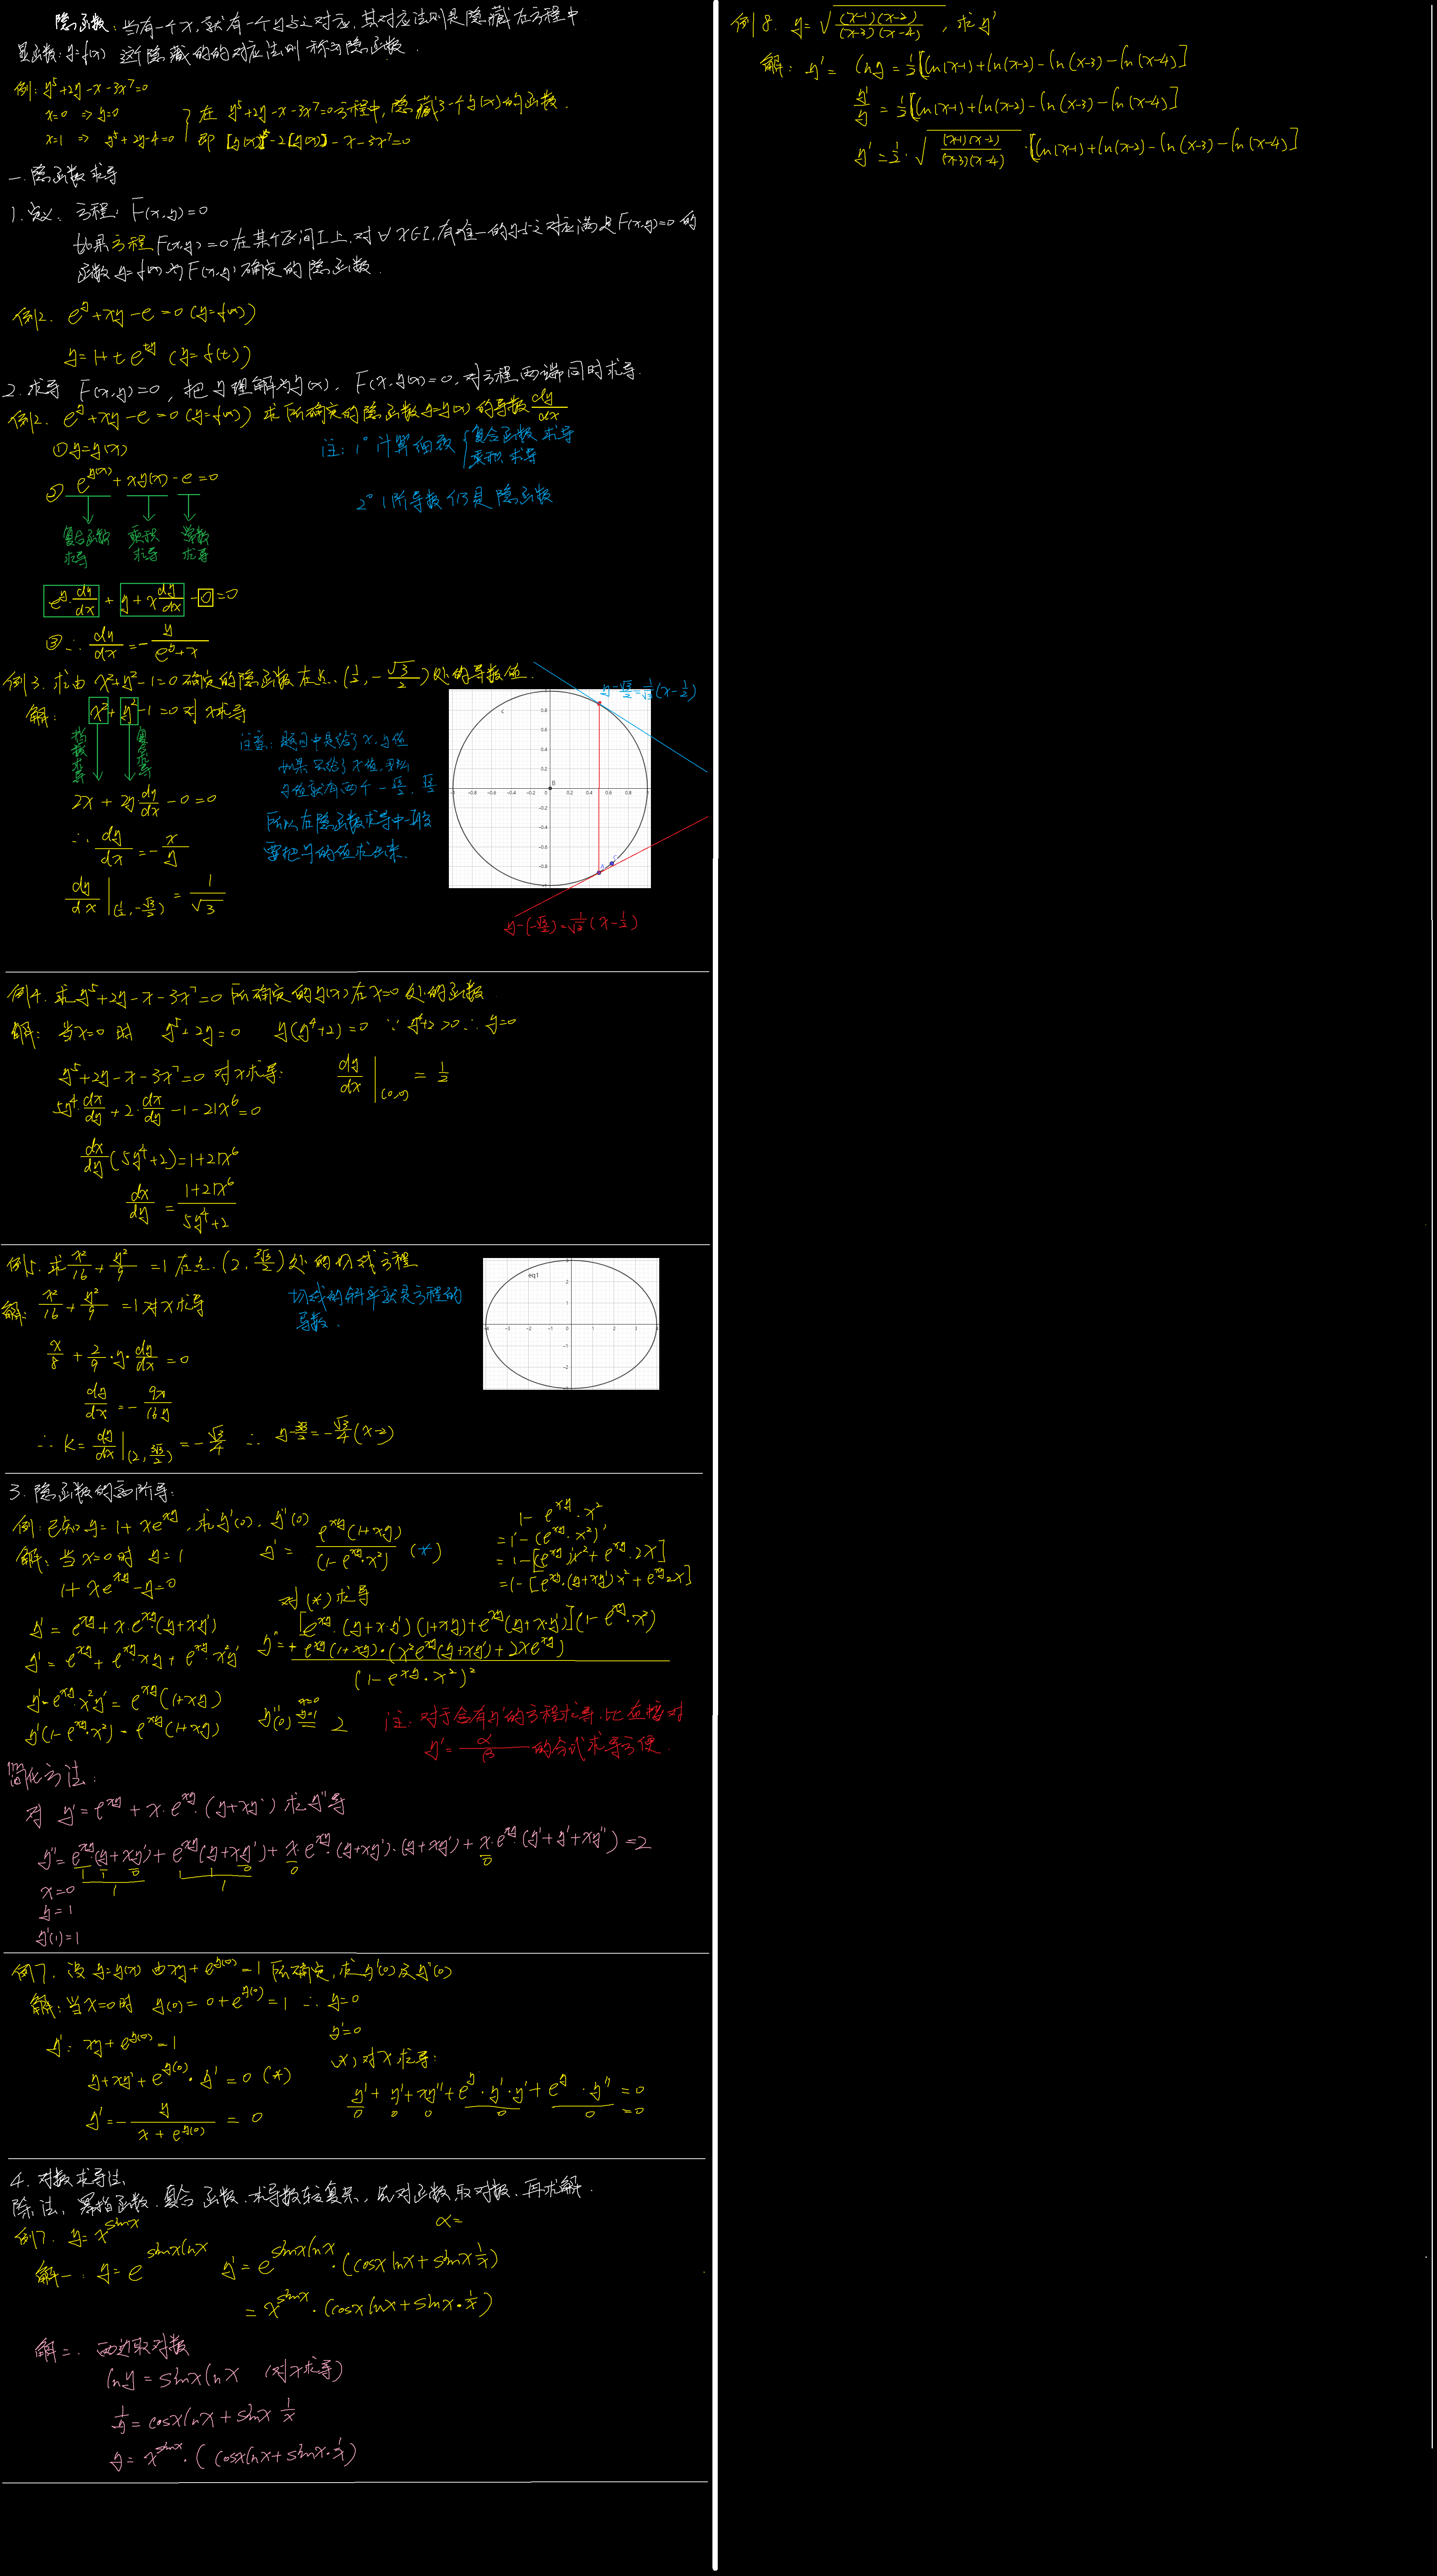 隐函数：当有一个x，就有一个y与之对应，其对应法则是隐藏在方程中
显函数：y=f(x) 这个隐藏的的对应法则 称为隐函数．
例：y⁵+2y-x-3x⁷=0
x=0 ⇒ y=0
x=1 ⇒ y⁵+2y-4=0
在 y⁵+2y-x-3x⁷=0方程中，隐藏了一个y(x)的函数．
即 [y(x)]⁵-2[y(x)]-x-3x⁷=0
一．隐函数求导
1. 定义：方程：F(x,y)=0
如果方程F(x,y)=0在某个区间I上，对∀x∈I，有唯一的y与之对应满足F(x,y)=0的
函数y=f(x)为F(x,y)确定的隐函数．
例2． e^y+xy-e=0 (y=f(x))
y=1+te^{ty} (y=f(t))
2. 求导 F(x,y)=0，把y理解为y(x)，F(x,y(x))=0，对方程两端同时求导．
例2． e^y+xy-e=0 (y=f(x)) 求所确定的隐函数y=y(x)的导数 dy/dx
① y=y(x)
注：1° 计算细致 { 复合函数求导
乘积求导
② e^{y(x)}+xy(x)-e=0
2° 1阶导数仍是隐函数
复合函数求导 乘积求导 常数求导
e^y·dy/dx + y+x dy/dx - 0 =0
③ ∴ dy/dx = - y/(e^y+x)
例3．求由x²+y²-1=0确定的隐函数在点(1/2, -√3/2)处的导数值．
解： x²+y²-1=0对x求导
指数求导 复合求导
注意：题目中是给了x,y值
如果只给了x值，那么
y值就有两个 -√3/2, √3/2
所以在隐函数求导中一般
要把y的值求出来．
2x+2y dy/dx -0=0
∴ dy/dx = - x/y
dy/dx |(1/2, -√3/2) = 1/√3
y-√3/2=1/√3(x-1/2)
y-(-√3/2)=1/√3(x-1/2)
例4．求y⁵+2y-x-3x⁷=0所确定的y(x)在x=0处的函数
解：当x=0时 y⁵+2y=0 y(y⁴+2)=0 ∵ y⁴+2>0 ∴ y=0
y⁵+2y-x-3x⁷=0 对x求导： dy/dx |(0,0) = 1/2
5y⁴·dx/dy+2·dx/dy-1-21x⁶=0
dx/dy(5y⁴+2)=1+21x⁶
dx/dy = (1+21x⁶)/(5y⁴+2)
例5．求x²/16+y²/9=1在点(2, 3√3/2)处的切线方程
解：x²/16+y²/9=1对x求导
切线的斜率就是方程的
导数．
eq1
x/8+2/9·y·dy/dx=0
dy/dx=-9x/16y
∴ K=dy/dx |(2, 3√3/2) = -√3/4 ∴ y-3√3/2=-√3/4(x-2)
3．隐函数的高阶导：
例：已知y=1+xe^{xy}，求y'(0)，y''(0)
解：当x=0时 y=1
1+xe^{xy}-y=0
y'=e^{xy}+x·e^{xy}(y+xy')
y'=e^{xy}+e^{xy}·xy+e^{xy}·x²y'
y'-e^{xy}·x²y'=e^{xy}(1+xy)
y'(1-e^{xy}·x²)=e^{xy}(1+xy)
y'= e^{xy}(1+xy)/(1-e^{xy}·x²) (*)
1-e^{xy}·x²
=1'-(e^{xy}·x²)'
=1'-[(e^{xy})'x²+e^{xy}·2x]
=1-[e^{xy}·(y+xy')x²+e^{xy}2x]
对(*)求导
y''= {[e^{xy}·(y+x·y')(1+xy)+e^{xy}(y+x·y')](1-e^{xy}·x²)
+e^{xy}(1+xy)·(x²e^{xy}(y+xy')+2xe^{xy})}/(1-e^{xy}·x²)²
y''(0) = 2 (x=0, y=1)
注：对于含有y'的方程求导，比直接对
y'=α/β 的分式求导方便．
简化方法：
对 y'=e^{xy}+x·e^{xy}·(y+xy')求y''导
y''=e^{xy}·(y+xy')+e^{xy}(y+xy')+x·e^{xy}·(y+xy')·(y+xy')+x·e^{xy}·(y'+y'+xy'')=2
1 1 0 1 1 0 0 0
1 1
x=0
y=1
y'(1)=1
例7．设y=y(x)由xy+e^{y(0)}=1所确定，求y'(0)及y''(0)
解：当x=0时 y(0)=0+e^{y(0)}=1 ∴ y=0
y'=0
y'：xy+e^{y(0)}=1
(*)对x求导：
y+xy'+e^{y(0)}·y'=0 (*)
y'+y'+xy''+e^y·y'·y'+e^y·y''=0
0 0 0 0 0 =0
y'=- y/(x+e^{y(0)}) = 0
4．对数求导法
除法，幂指函数，复合函数，求导数较复杂，先对函数取对数，再求解．
例7． y=x^{sinx} α=
解一：y=e^{sinxlnx} y'=e^{sinxlnx}·(cosxlnx+sinx 1/x)
=x^{sinx}·(cosxlnx+sinx·1/x)
解二．两边取对数
lny=sinxlnx (对x求导)
1/y=cosxlnx+sinx 1/x
y=x^{sinx}·(cosxlnx+sinx·1/x)
例8． y=√((x-1)(x-2)/(x-3)(x-4))，求y'
解：y'= lny=1/2[ln(x-1)+ln(x-2)-ln(x-3)-ln(x-4)]
y'/y=1/2[ln(x-1)+ln(x-2)-ln(x-3)-ln(x-4)]
y'=1/2·√((x-1)(x-2)/(x-3)(x-4))·[ln(x-1)+ln(x-2)-ln(x-3)-ln(x-4)]